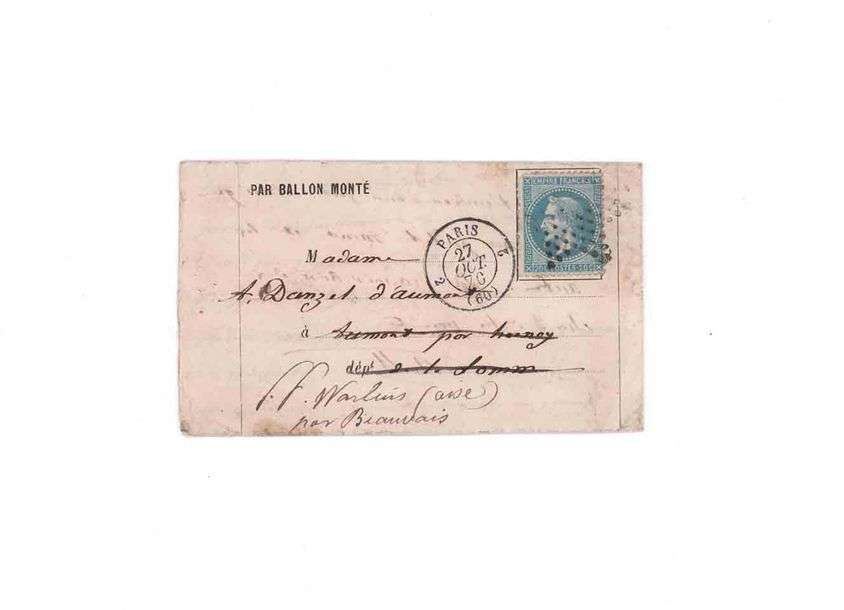 PAR BALLON MONTÉ
EMPIRE FRANC
20 POSTES 20 C
PARIS
2 2
27
OCT
70
(60)
Madame
A. Danzel d'aumon
à aumont par hornoy
dépt de la Somme
Warluis (oise)
par Beauvais